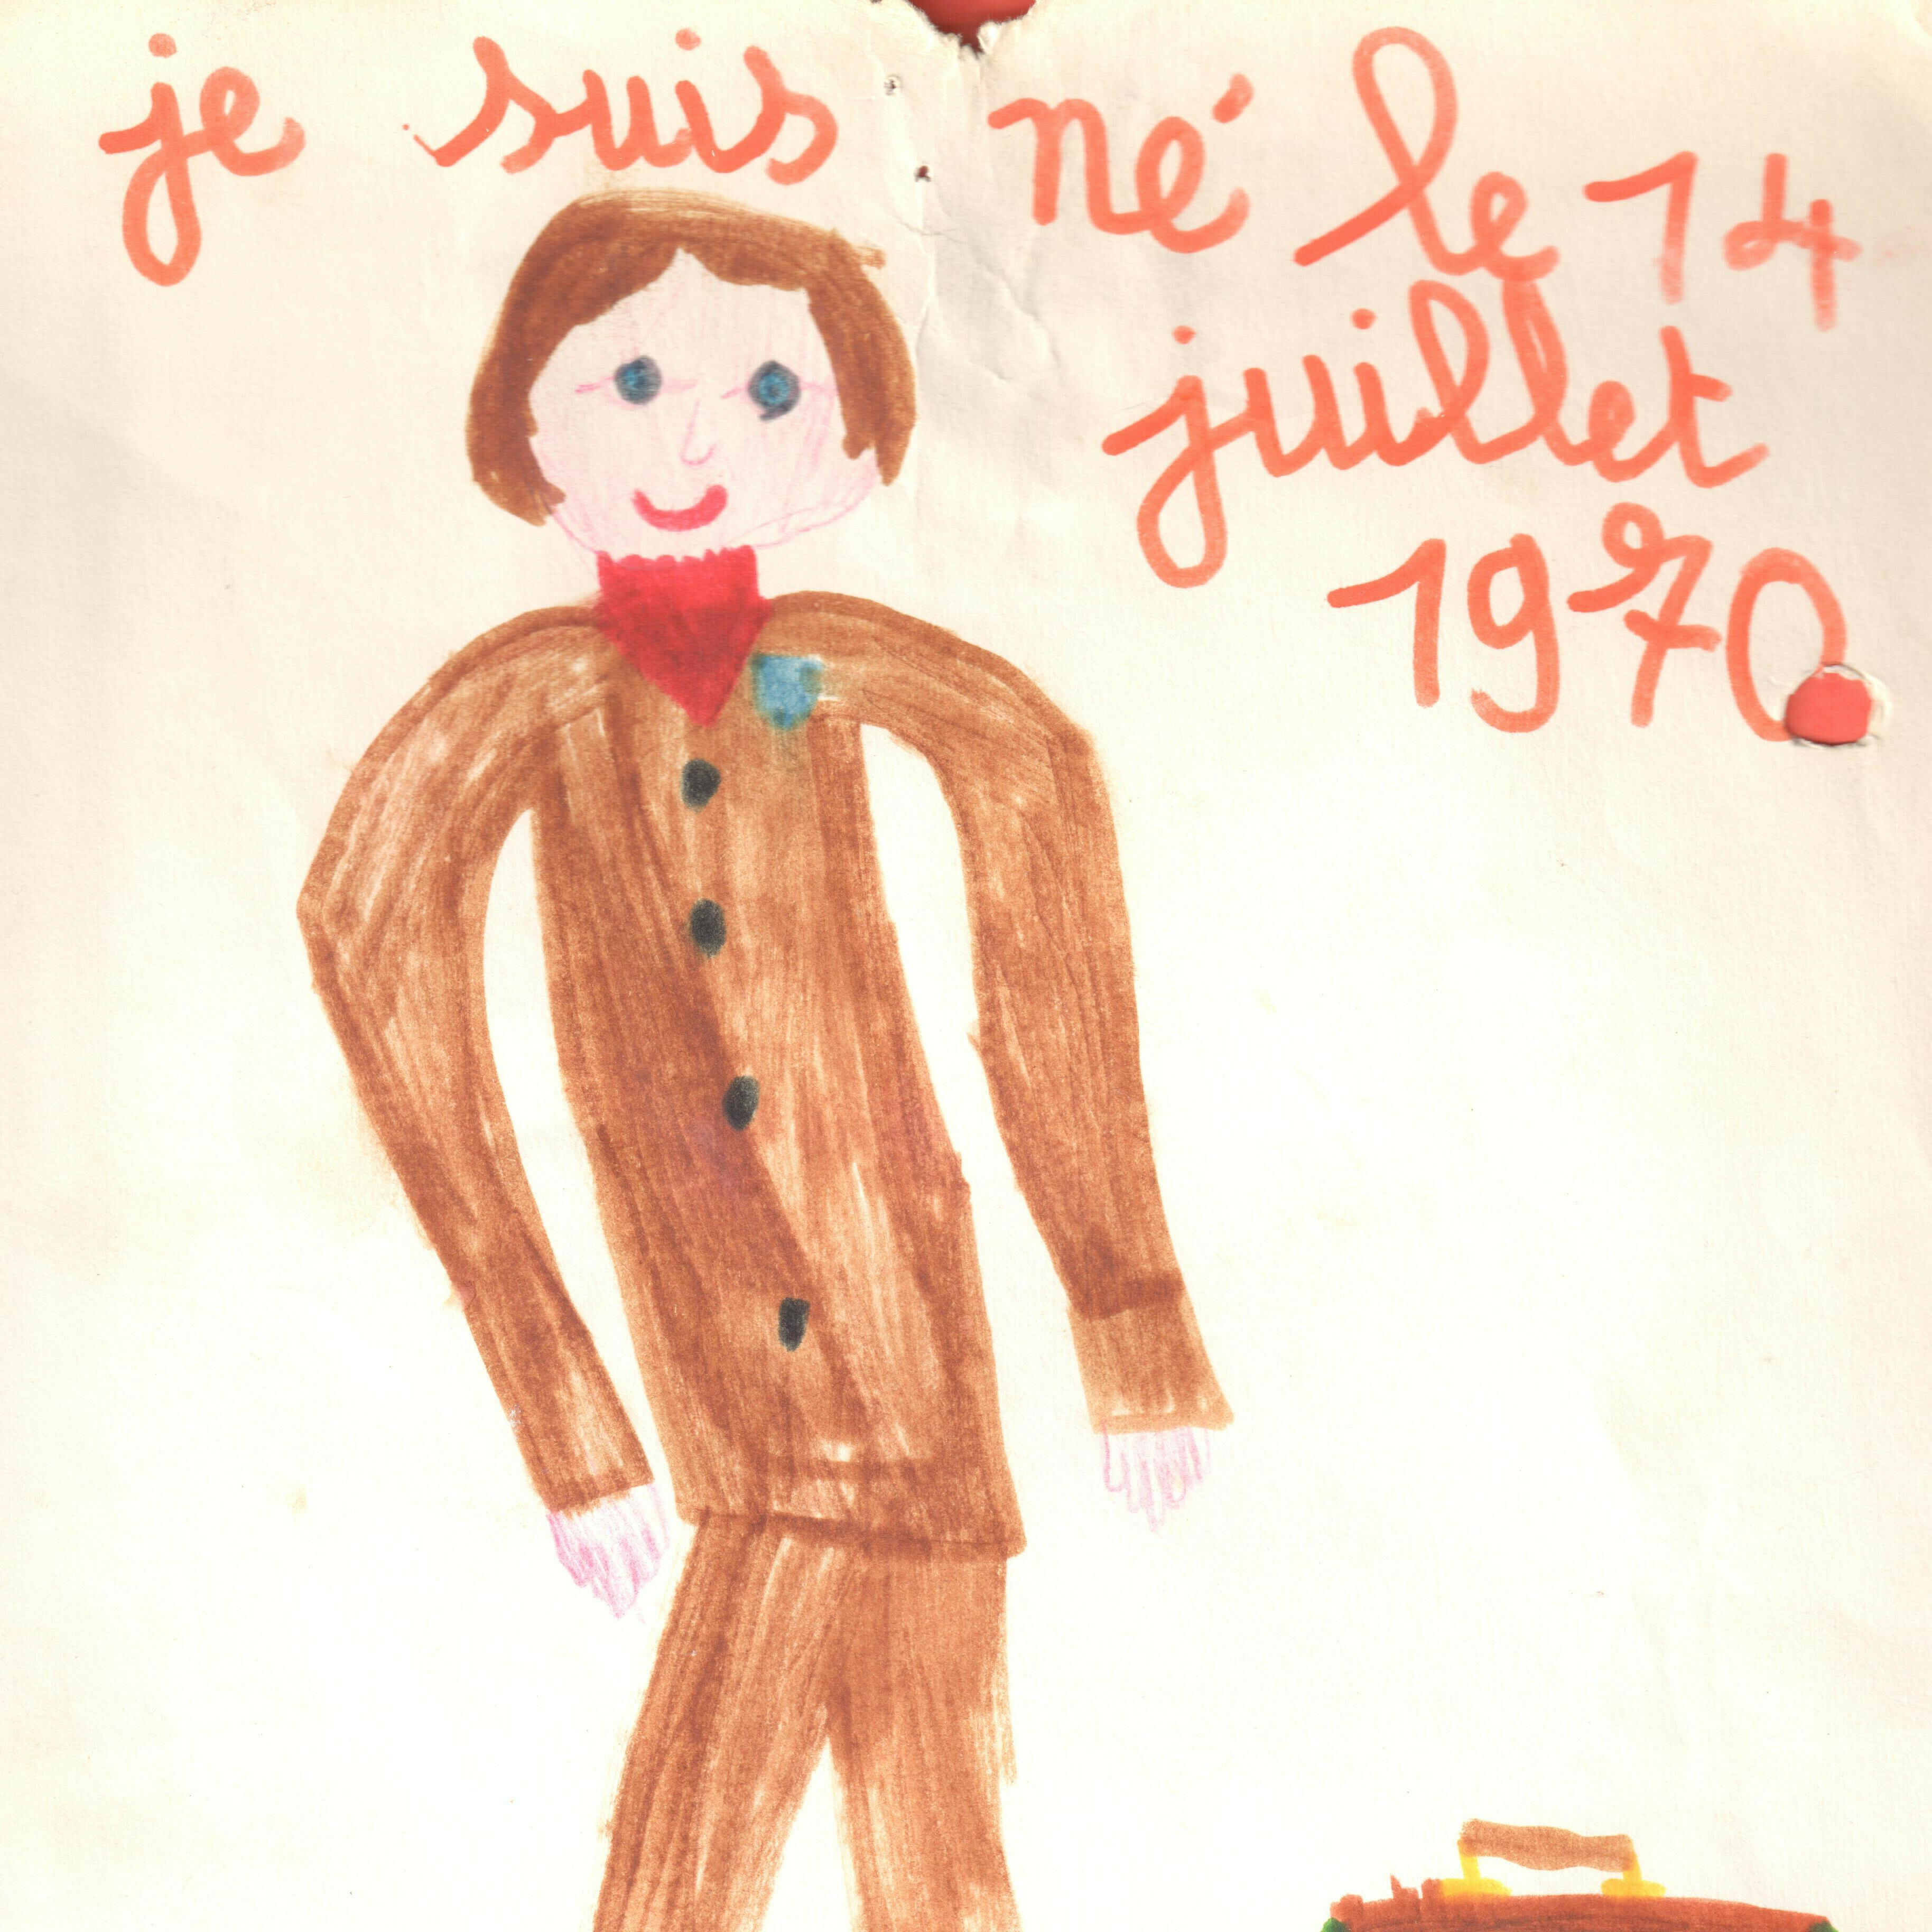 je suis né le 14
juillet
1970